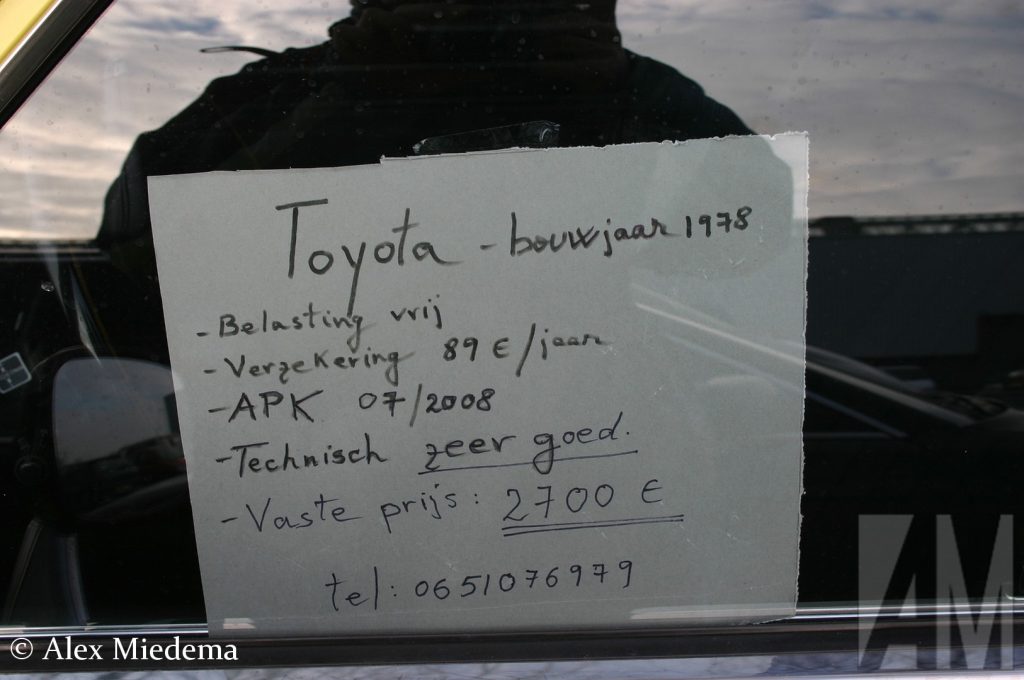 Toyota - bouwjaar 1978
- Belasting vrij
- Verzekering 89 € / jaar
- APK 07/2008
- Technisch zeer goed.
- Vaste prijs: 2700 €
tel: 0651076979
© Alex Miedema
AM